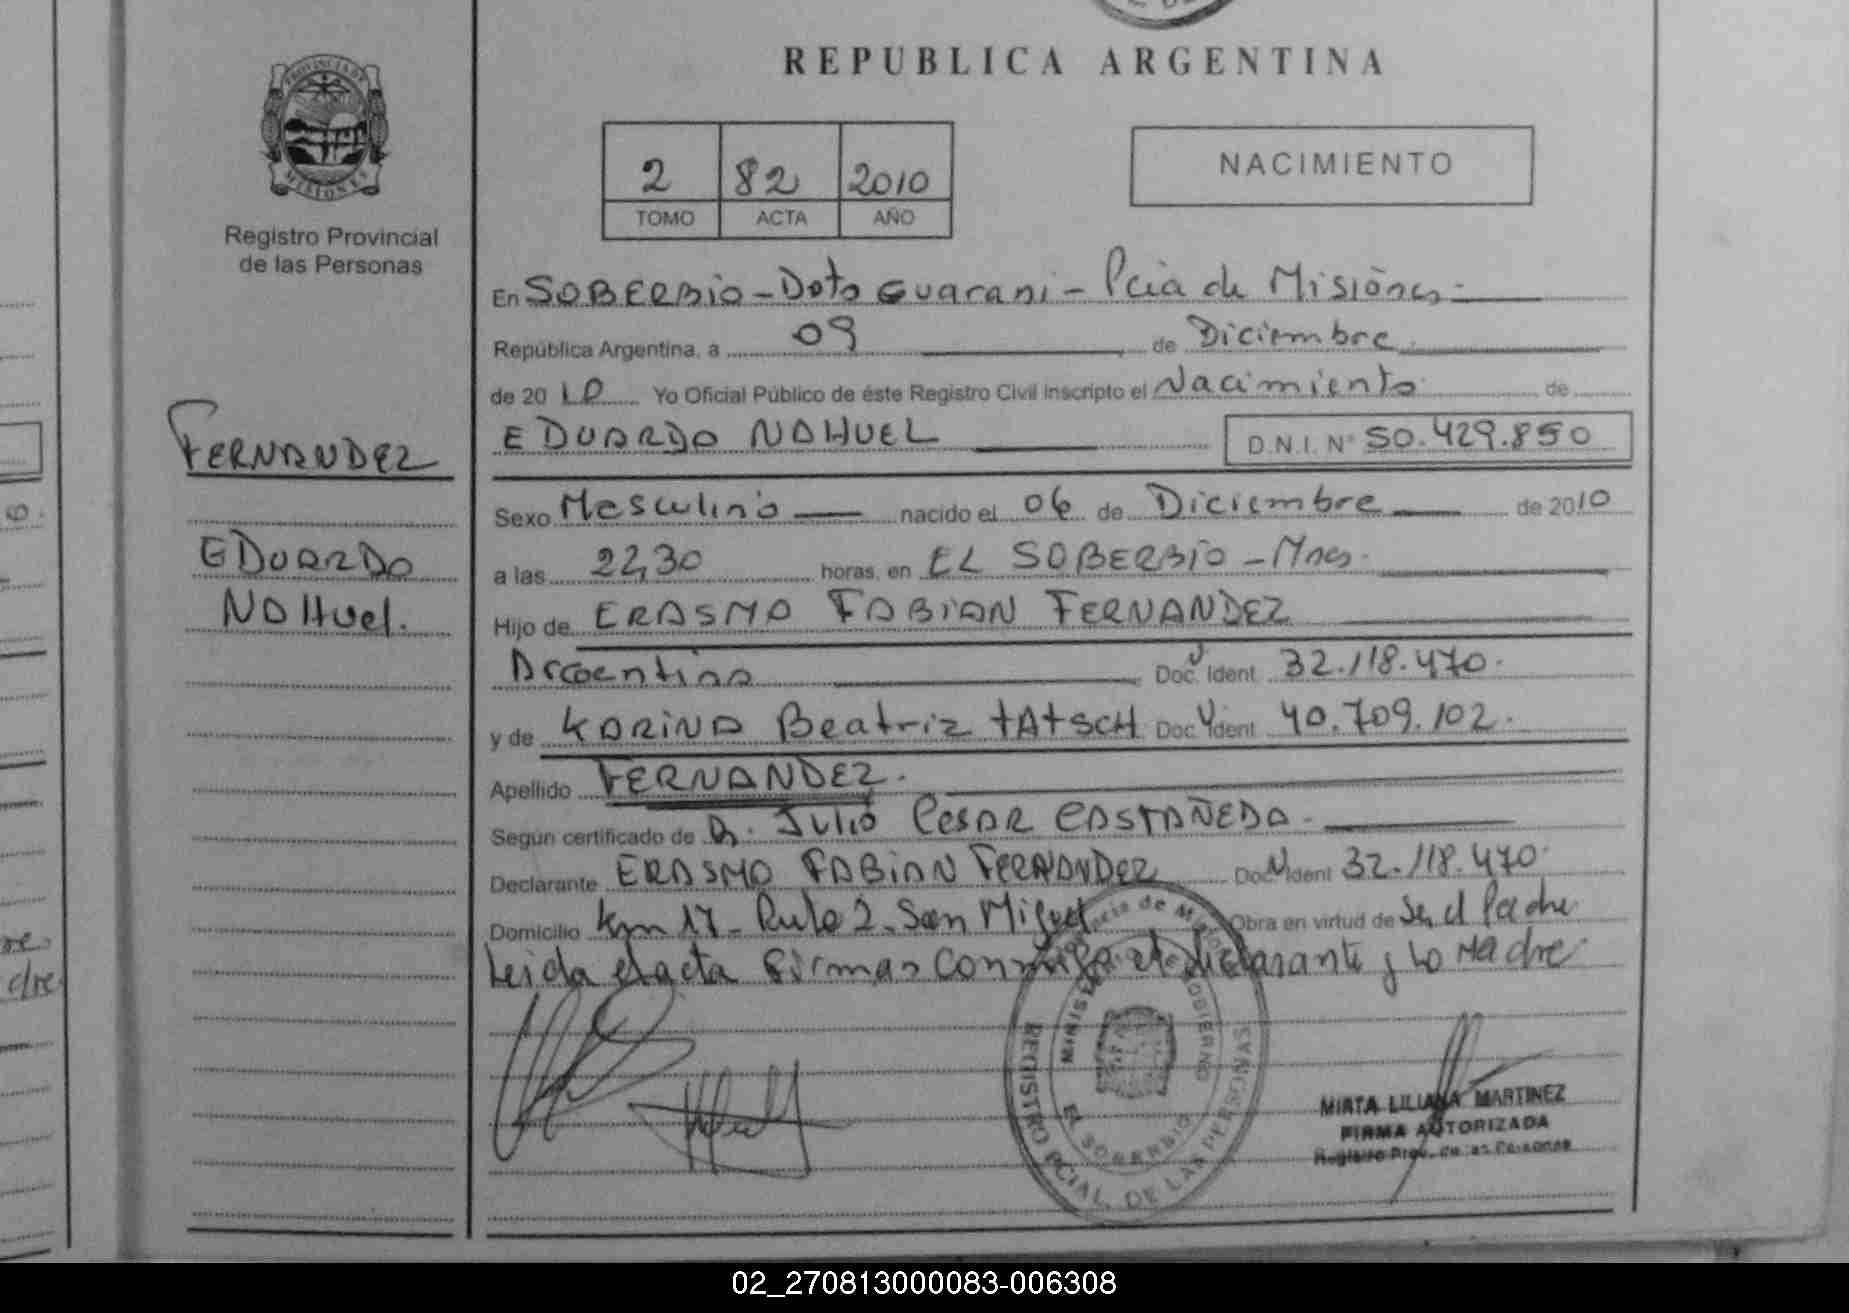 REPUBLICA ARGENTINA
PROVINCIA DE
MISIONES
Registro Provincial
de las Personas
2 82 2010
TOMO ACTA AÑO
NACIMIENTO
En SOBERBIO - Dpto Guarani - Pcia de Misiones.
República Argentina, a 09 de Diciembre
de 2010 Yo Oficial Público de éste Registro Civil inscripto el Nacimiento de
FERNANDEZ
EDUARDO NAHUEL D.N.I. Nº 50.429.850
Sexo Masculino nacido el 06 de Diciembre de 2010
EDUARDO
a las 22,30 horas, en EL SOBERBIO - Mnes.
NAHUEL.
Hijo de ERASMO FABIAN FERNANDEZ
Argentina Doc. Ident 32.118.470.
y de KARINA Beatriz TATSCH Doc. Ident 40.709.102.
Apellido FERNANDEZ.
Según certificado de Dr. JULIO CESAR CASTAÑEDA.
Declarante ERASMO FABIAN FERNANDEZ Doc. Ident 32.118.470.
Domicilio Km 17 - Ruta 2. San Miguel Obra en virtud de Ser el Padre
Leida el acta firman conmigo el declarante y la Madre
MINISTERIO GOBIERNO
EL SOBERBIO
REGISTRO PCIAL. DE LAS PERSONAS
MIRTA LILIANA MARTINEZ
FIRMA AUTORIZADA
Registro Prov. de las Personas
02_270813000083-006308